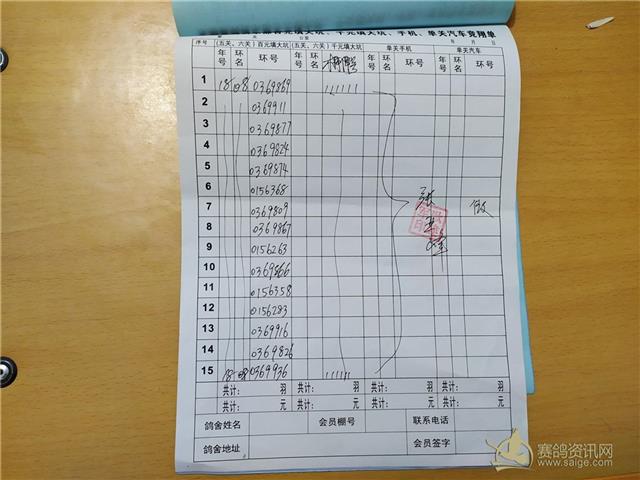 填大坑、千元填大坑、手机、单关汽车竞翔单
年 月 日
序号 (五关、六关)百元填大坑 (五关、六关)千元填大坑 单关手机 单关汽车
年号 环名 环号 年号 环名 年号 环名 环号 年号 环名 环号
1 18 08 0369869 111111
2 0369911
3 0369877
4 0369824
5 0369874
6 0156368
7 0369809
8 0369867
9 0156263
10 0369866
11 0156358
12 0156283
13 0369916
14 0369826
15 18 08 0369936 111111
张
共计: 羽 共计: 羽 共计: 羽 共计: 羽
共计: 元 共计: 元 共计: 元 共计: 元
鸽舍姓名 会员棚号 联系电话
鸽舍地址 会员签字
赛鸽资讯网
www.saige.com